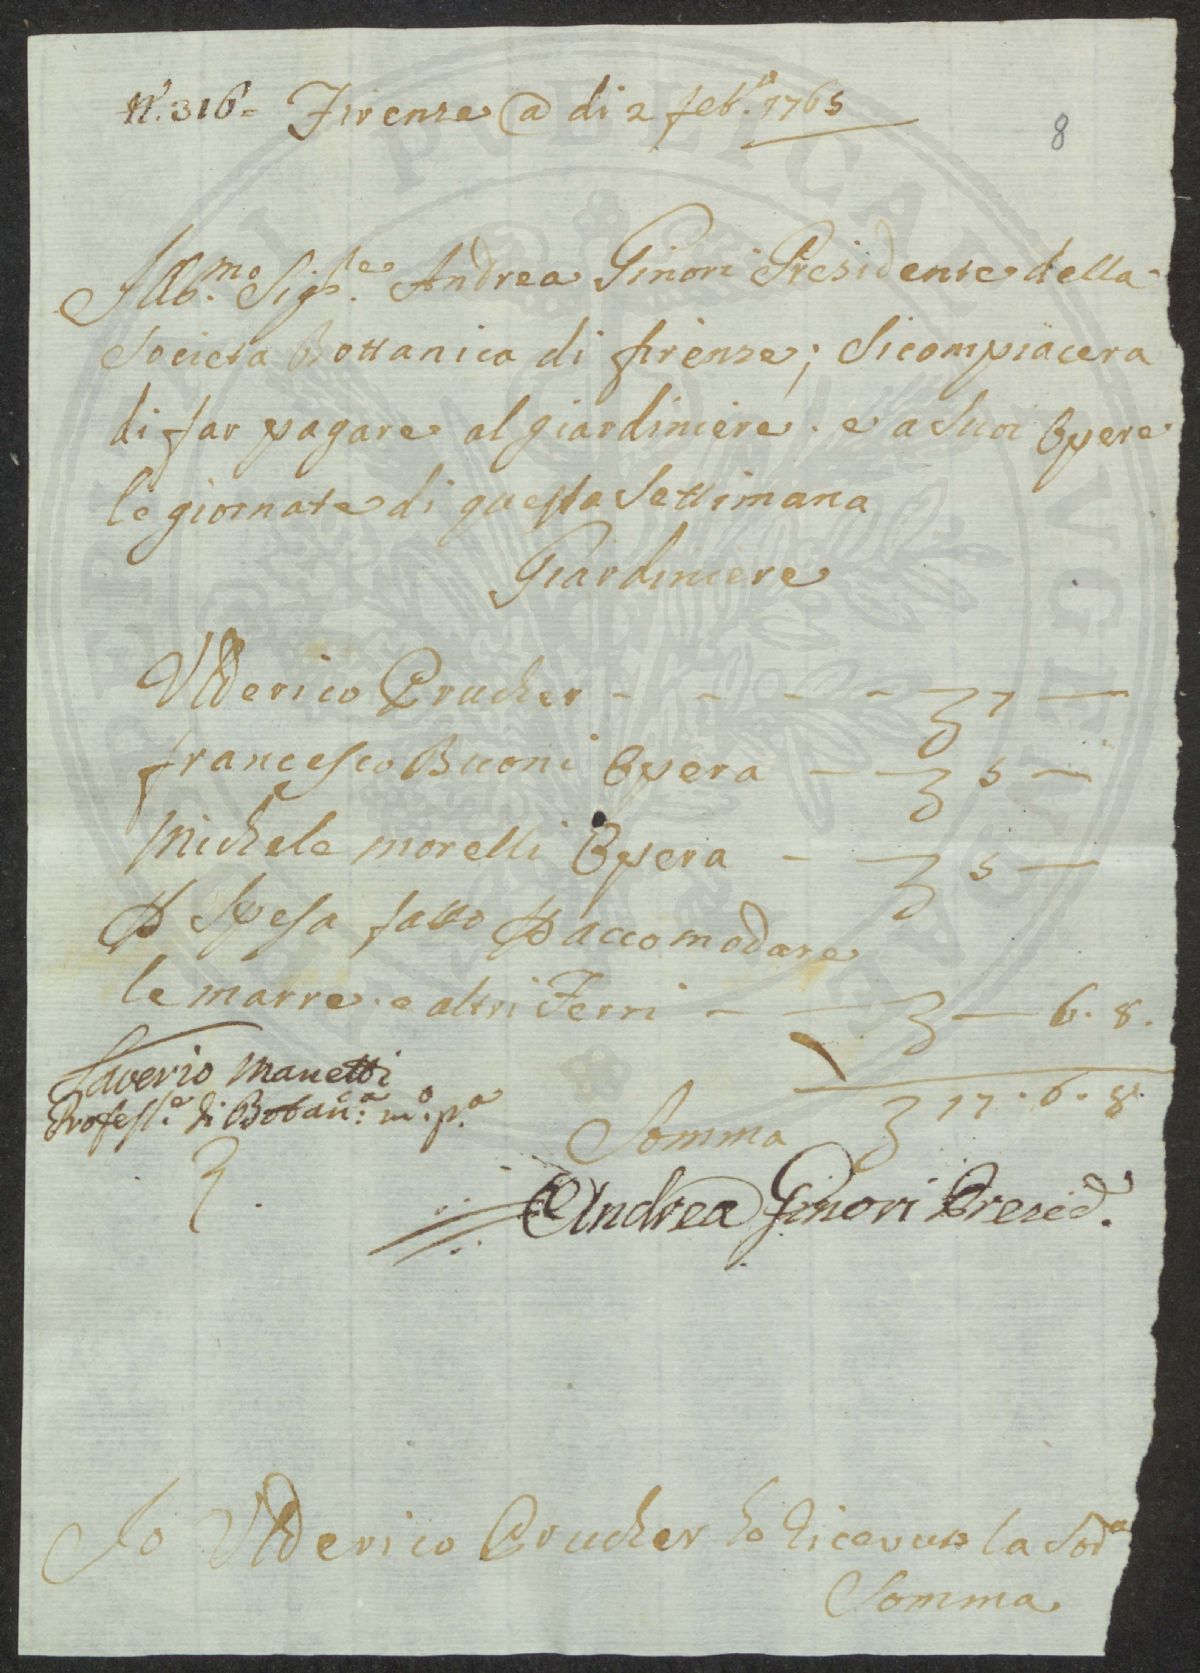 N.° 316= Firenze @ di 2 feb.° 1765
8
Ill.mo Sig.re Andrea Ginori Presidente della
Societa Bottanica di firenze; si compiacera
di far pagare al giardiniere. e a suoi Opere
le giornate di questa Settimana
Giardiniere
Ulderico Prucker - - - - 7 —
francesco Buoni Opera — 5 —
Michele morelli Opera - 5 —
P Spesa fatto P accomodare
le marre. e altri Ferri - — 6. 8.
Saverio Manetti
Profess.e di Botan.ca m.o p.a
Somma 17. 6. 8.
Andrea Ginori Presid.
Io Ulderico Prucker ho ricevuto la Sod.a
Somma